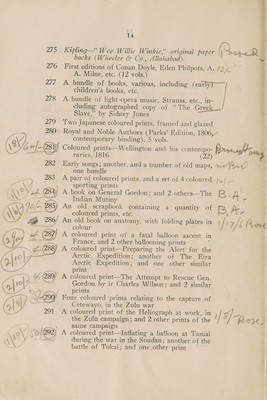 14
275 Kipling—"Wee Willie Winkie," original paper
backs (Wheeler & Co., Allahabad)
276 First editions of Conan Doyle, Eden Philpots, A.
A. Milne, etc. (12 vols.)
277 A bundle of books, various, including (early)
children's books, etc.
278 A bundle of light-opera music, Strauss, etc., in-
cluding autographed copy of "The Greek
Slave," by Sidney Jones
279 Two Japanese coloured prints, framed and glazed
280 Royal and Noble Authors (Parks' Edition, 1806,
contemporary binding), 5 vols.
281 Coloured prints—Wellington and his contempo-
raries, 1816 (22)
282 Early songs; another, and a number of old maps, no Bid
one bundle
283 A pair of coloured prints, and a set of 4 coloured
sporting prints
284 A book on General Gordon; and 2 others—The B.A.
Indian Mutiny
285 An old scrapbook containing a quantity of B.A.
coloured prints, etc.
286 An old book on anatomy, with folding plates in
colour
287 A coloured print of a fatal balloon ascent in
France, and 2 other ballooning prints
288 A coloured print—Preparing the Alert for the
Arctic Expedition; another of The Eira
Arctic Expedition; and one other similar
print
289 A coloured print—The Attempt to Rescue Gen.
Gordon by ir Charles Wilson; and 2 similar
prints
290 Four coloured prints relating to the capture of
Cetewayo, in the Zulu war
291 A coloured print of the Heliograph at work, in
the Zulu campaign; and 2 other prints of the Rose.
same campaign
292 A coloured print—Inflating a balloon at Tamai
during the war in the Soudan; another of the
battle of Tokai; and one other print